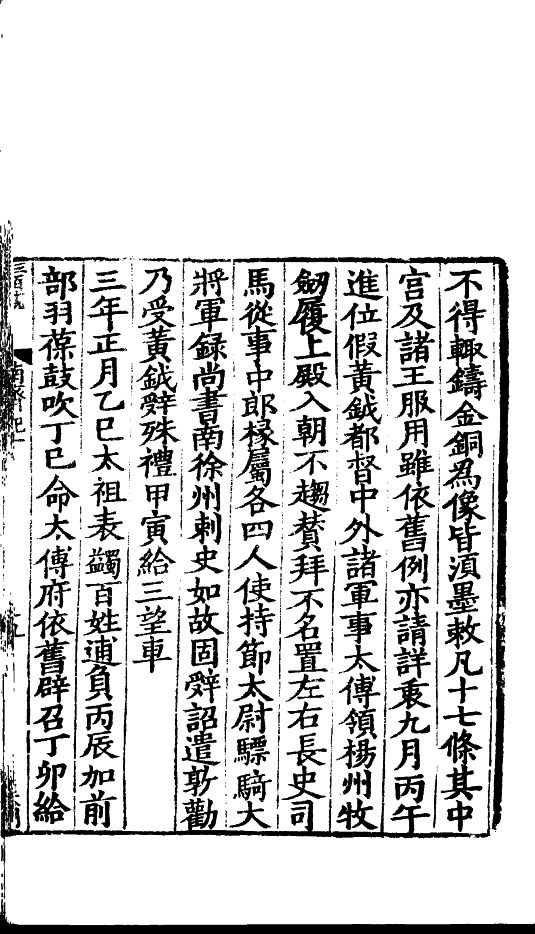 不得輙鑄金銅爲像皆須墨敕凡十七條其中
宮及諸王服用雖依舊例亦請詳衷九月丙午
進位假黄鉞都督中外諸軍事太傅領楊州牧
劒履上殿入朝不趨賛拜不名置左右長史司
馬從事中郎掾屬各四人使持節太尉驃騎大
將軍録尚書南徐州刺史如故固辤詔遣敦勸
乃受黄鉞辤殊禮甲寅給三望車
三年正月乙巳太祖表蠲百姓逋負丙辰加前
部羽葆鼓吹丁巳命太傅府依舊辟召丁卯給
南齊紀一